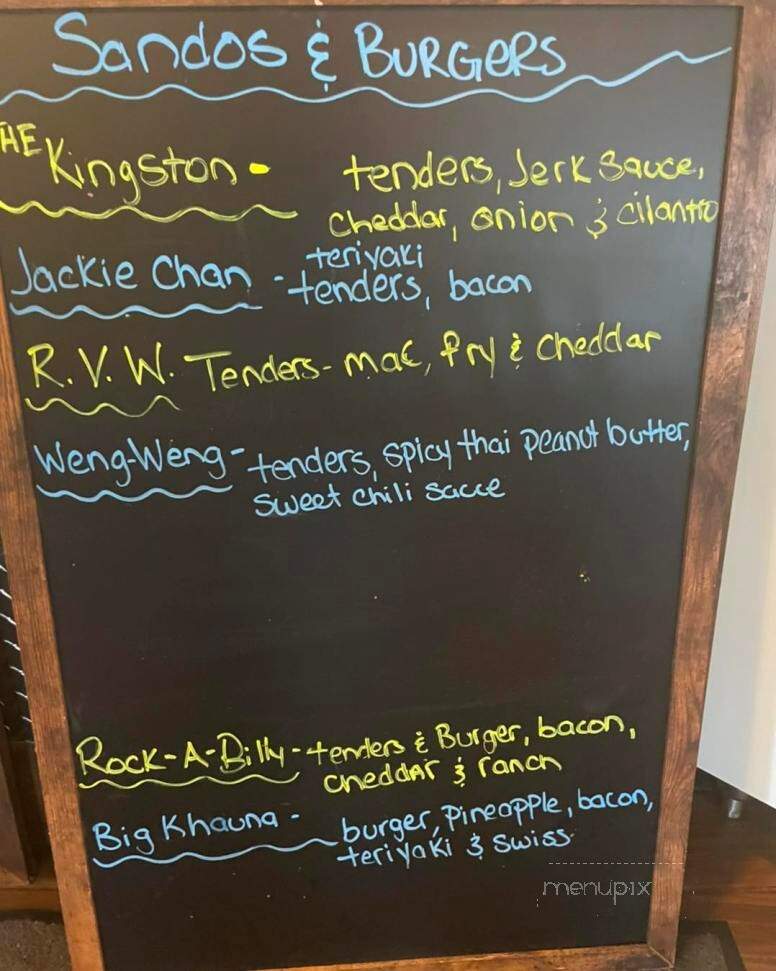 Sandos & BURGERS
THE Kingston - tenders, Jerk Sauce,
cheddar, onion & cilantro
Jackie Chan - teriyaki
tenders, bacon
R.V.W. Tenders - mac, fry & cheddar
Weng-Weng - tenders, spicy thai peanut butter,
sweet chili sauce
Rock-A-Billy - tenders & Burger, bacon,
cheddar & ranch
Big Khauna - burger, pineapple, bacon,
teriyaki & swiss
menupix